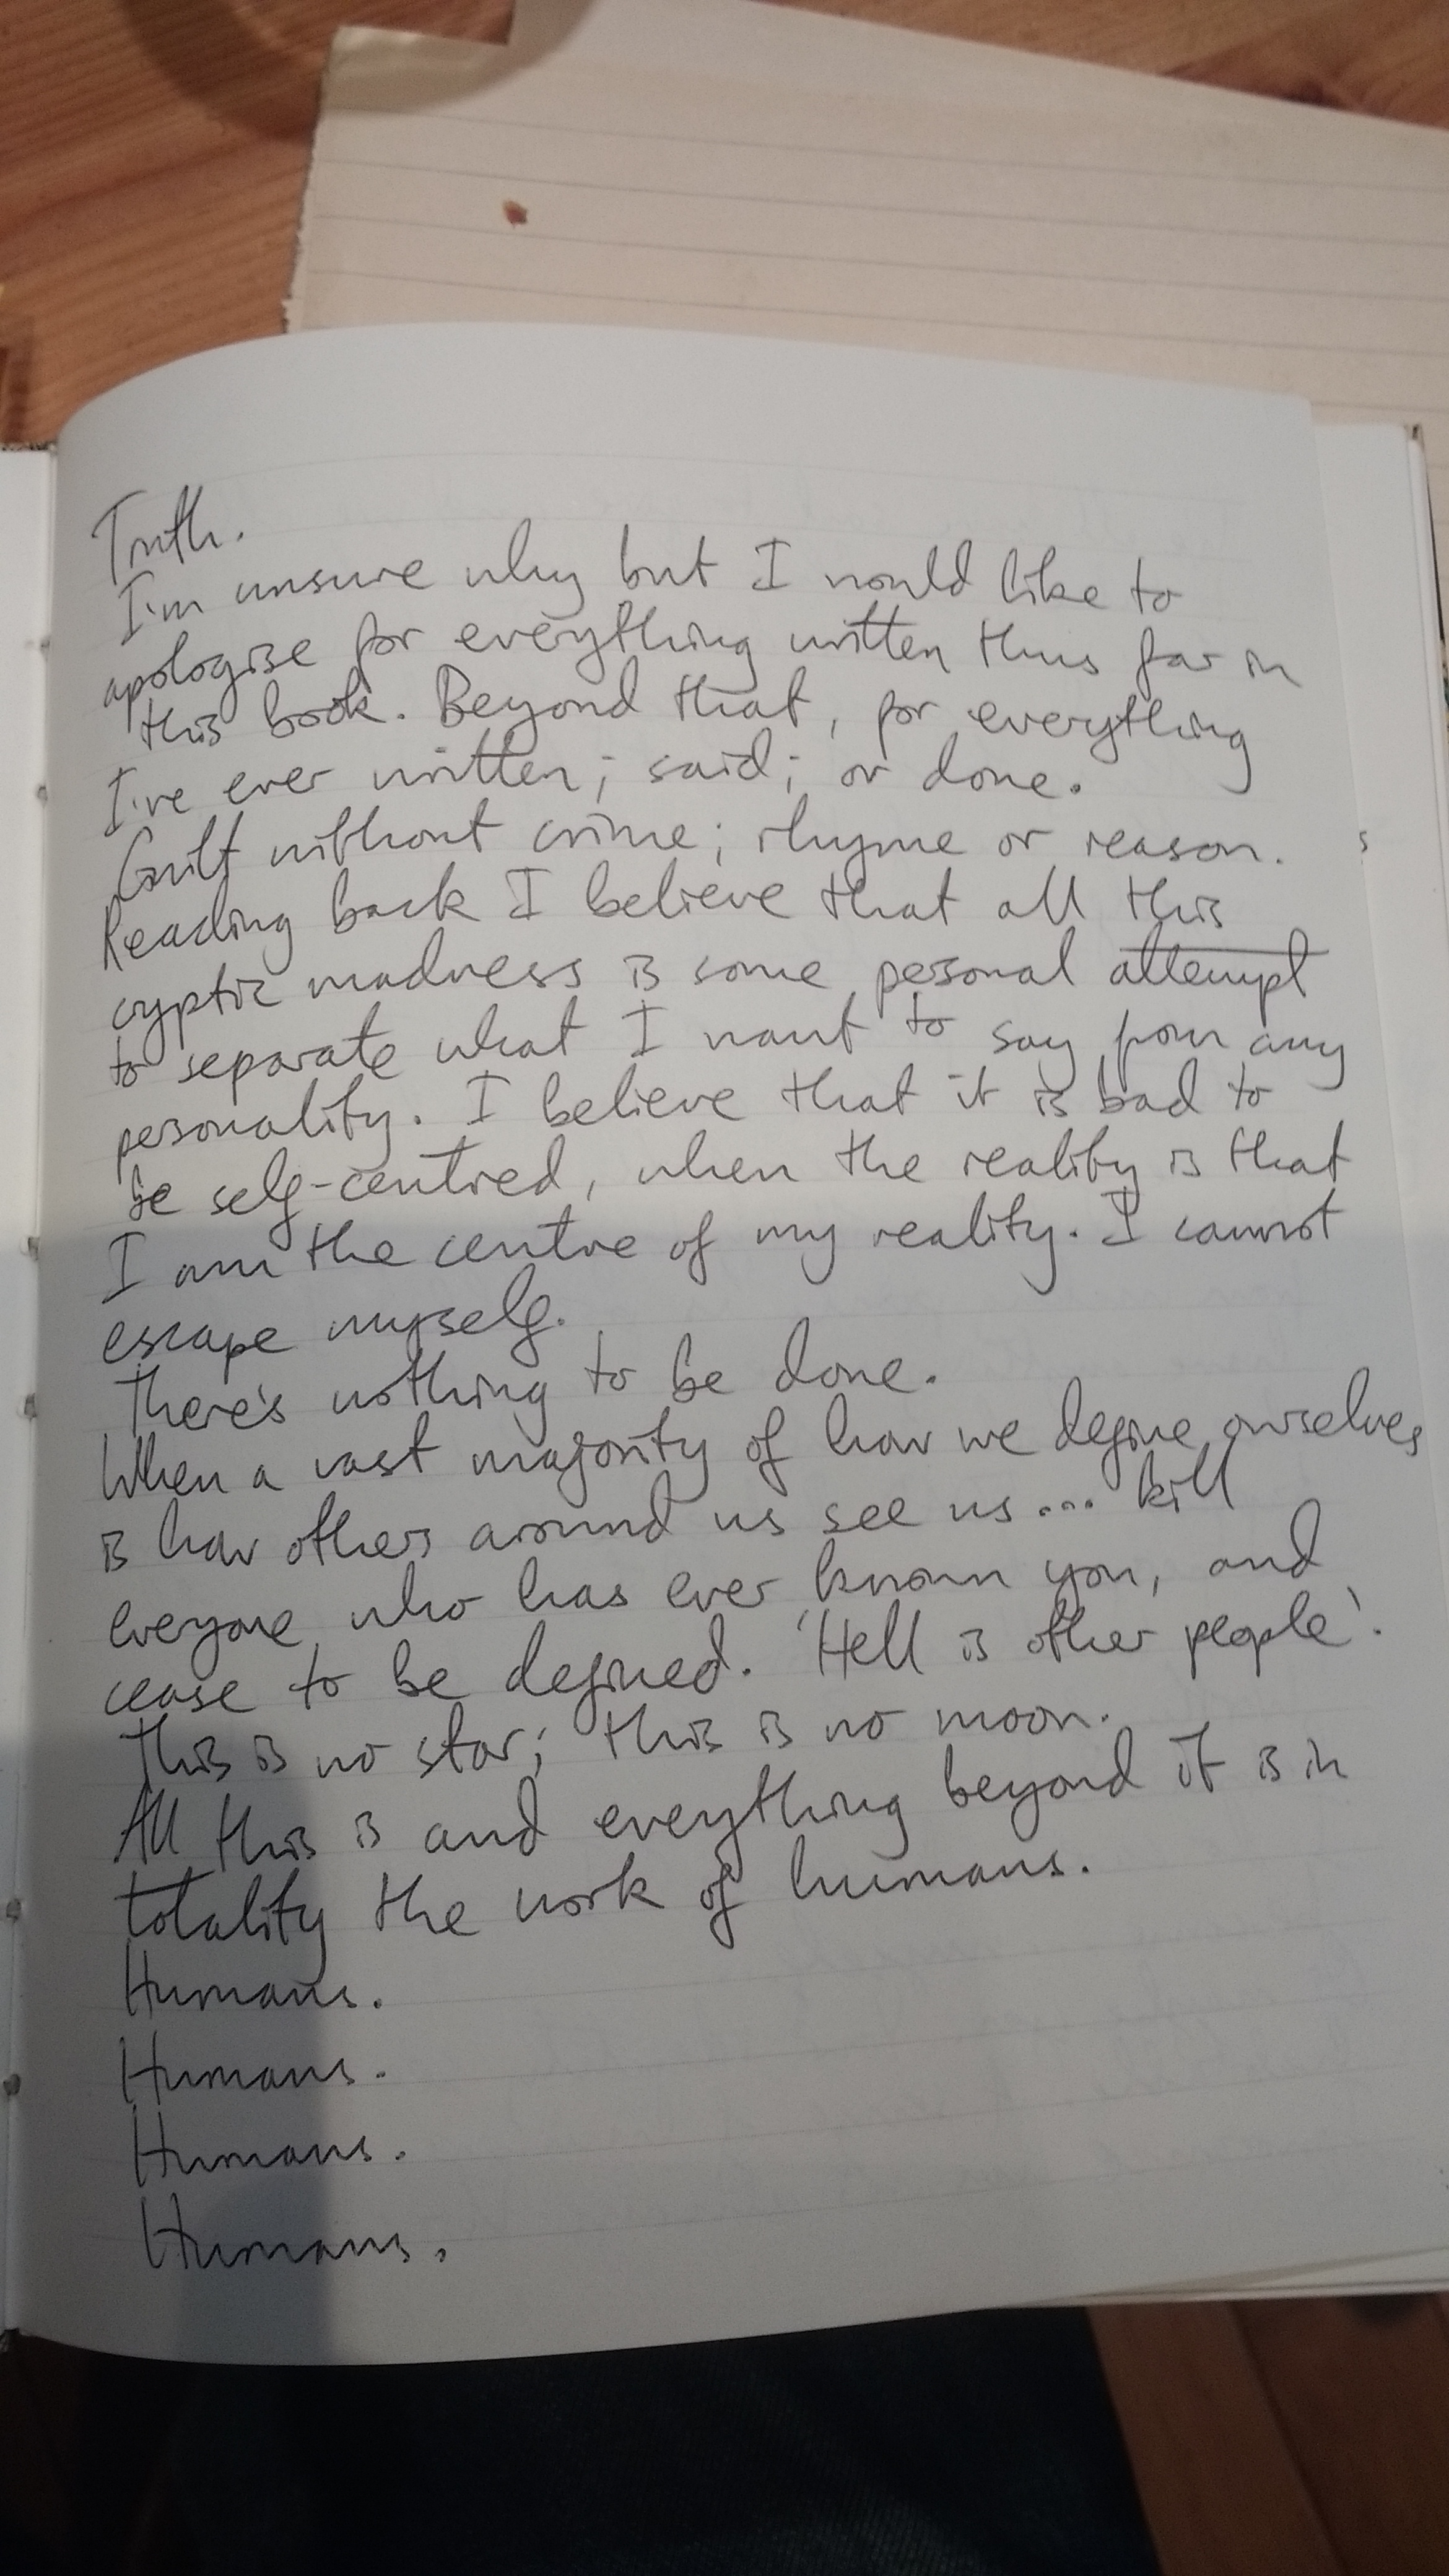 Truth.
I'm unsure why but I would like to
apologise for everything written thus far in
this book. Beyond that, for everything
I've ever written; said; or done.
Guilt without crime; rhyme or reason.
Reading back I believe that all this
cryptic madness is some personal attempt
to separate what I want to say from any
personality. I believe that it is bad to
be self-centred, when the reality is that
I am the centre of my reality. I cannot
escape myself.
There's nothing to be done.
When a vast majority of how we define ourselves
is how others around us see us... kill
everyone who has ever known you, and
cease to be defined. 'Hell is other people'.
This is no star; this is no moon.
All this is and everything beyond it is in
totality the work of humans.
Humans.
Humans.
Humans.
Humans.